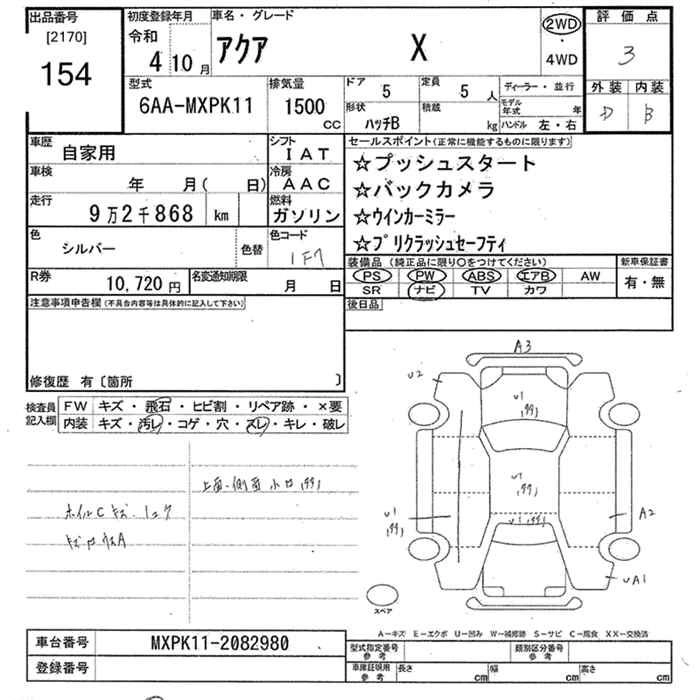 出品番号
[2170]
154
初度登録年月
令和
4 10月
車名・グレード
アクア X
2WD
・
4WD
評価点
3
外装 内装
D B
型式
6AA-MXPK11
排気量
1500
CC
ドア 5
定員 5 人
形状 ハッチB
積載 kg
ディーラー・並行
モデル年式 年
ハンドル 左・右
車歴 自家用
シフト IAT
車検 年 月( 日)
冷房 AAC
走行 9万2千868 km
燃料 ガソリン
色 シルバー
色替
色コード 1F7
R券 10,720円
名変通知期限 月 日
セールスポイント(正常に機能するものに限ります)
☆プッシュスタート
☆バックカメラ
☆ウインカーミラー
☆プリクラッシュセーフティ
装備品 (純正品に限り○をつけてください)
PS PW ABS エアB AW
SR ナビ TV カワ
新車保証書
有・無
後日品
注意事項申告欄(不具合内容等は具体的に記入して下さい)
修復歴 有〔箇所 〕
検査員
記入欄
FW キズ・飛石・ヒビ割・リペア跡・×要
内装 キズ・汚レ・コゲ・穴・スレ・キレ・破レ
ホイルC キズ
A3
U2
U1
U1
U1
U1
A2
UA1
スペア
A−キズ E−エクボ U−凹み W−補修跡 S−サビ C−腐食 XX−交換済
車台番号 MXPK11-2082980
登録番号
型式指定番号
参考
類別区分番号
参考
車庫証明用
参考
長さ cm
幅 cm
高さ cm